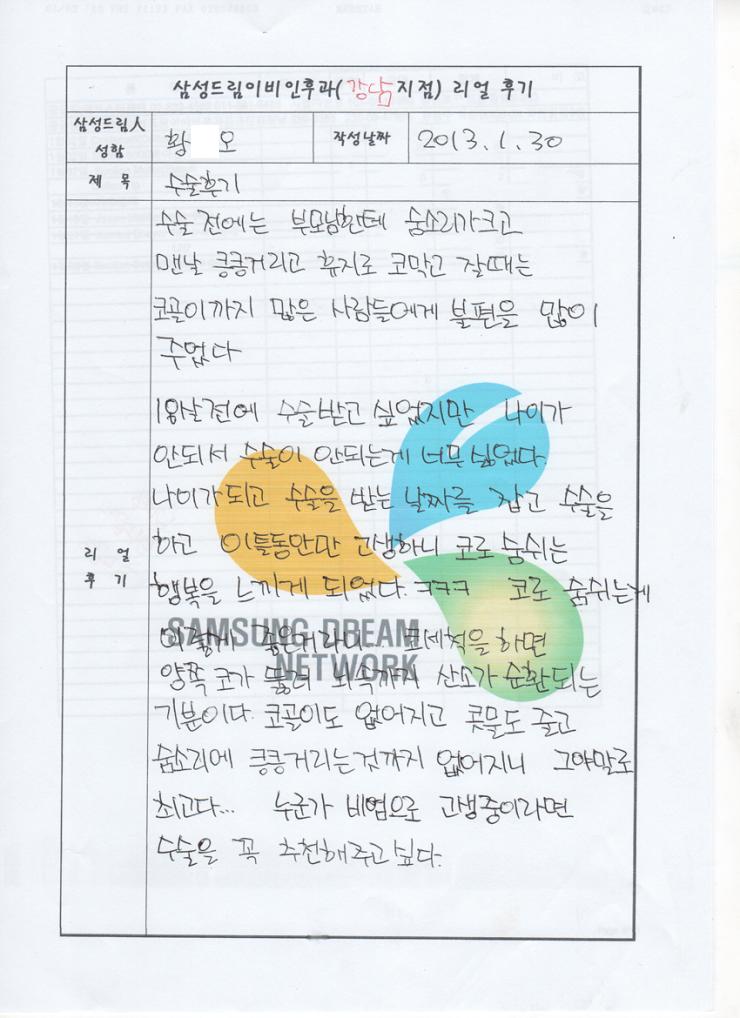 삼성드림이비인후과(강남지점) 리얼 후기
삼성드림人 성함
황 오
작성날짜
2013. 1. 30
제 목
수술후기
리 얼 후 기
수술 전에는 부모님한테 숨소리가크고
맨날 킁킁거리고 휴지로 코막고 잘때는
코골이까지 많은 사람들에게 불편을 많이
주었다
전에 수술받고 싶었지만 나이가
안되서 수술이 안되는게 너무 싫었다.
나이가되고 수술을 받는 날짜를 잡고 수술을
하고 이틀동안만 고생하니 코로 숨쉬는
행복을 느끼게 되었다. ㅋㅋㅋ 코로 숨쉬는게
이렇게 좋은거라니 코세척을 하면
양쪽 코가 뚫려 뇌속까지 산소가 순환되는
기분이다. 코골이도 없어지고 콧물도 줄고
숨소리에 킁킁거리는것까지 없어지니 그야말로
최고다... 누군가 비염으로 고생중이라면
수술을 꼭 추천해주고싶다.
SAMSUNG DREAM
NETWORK